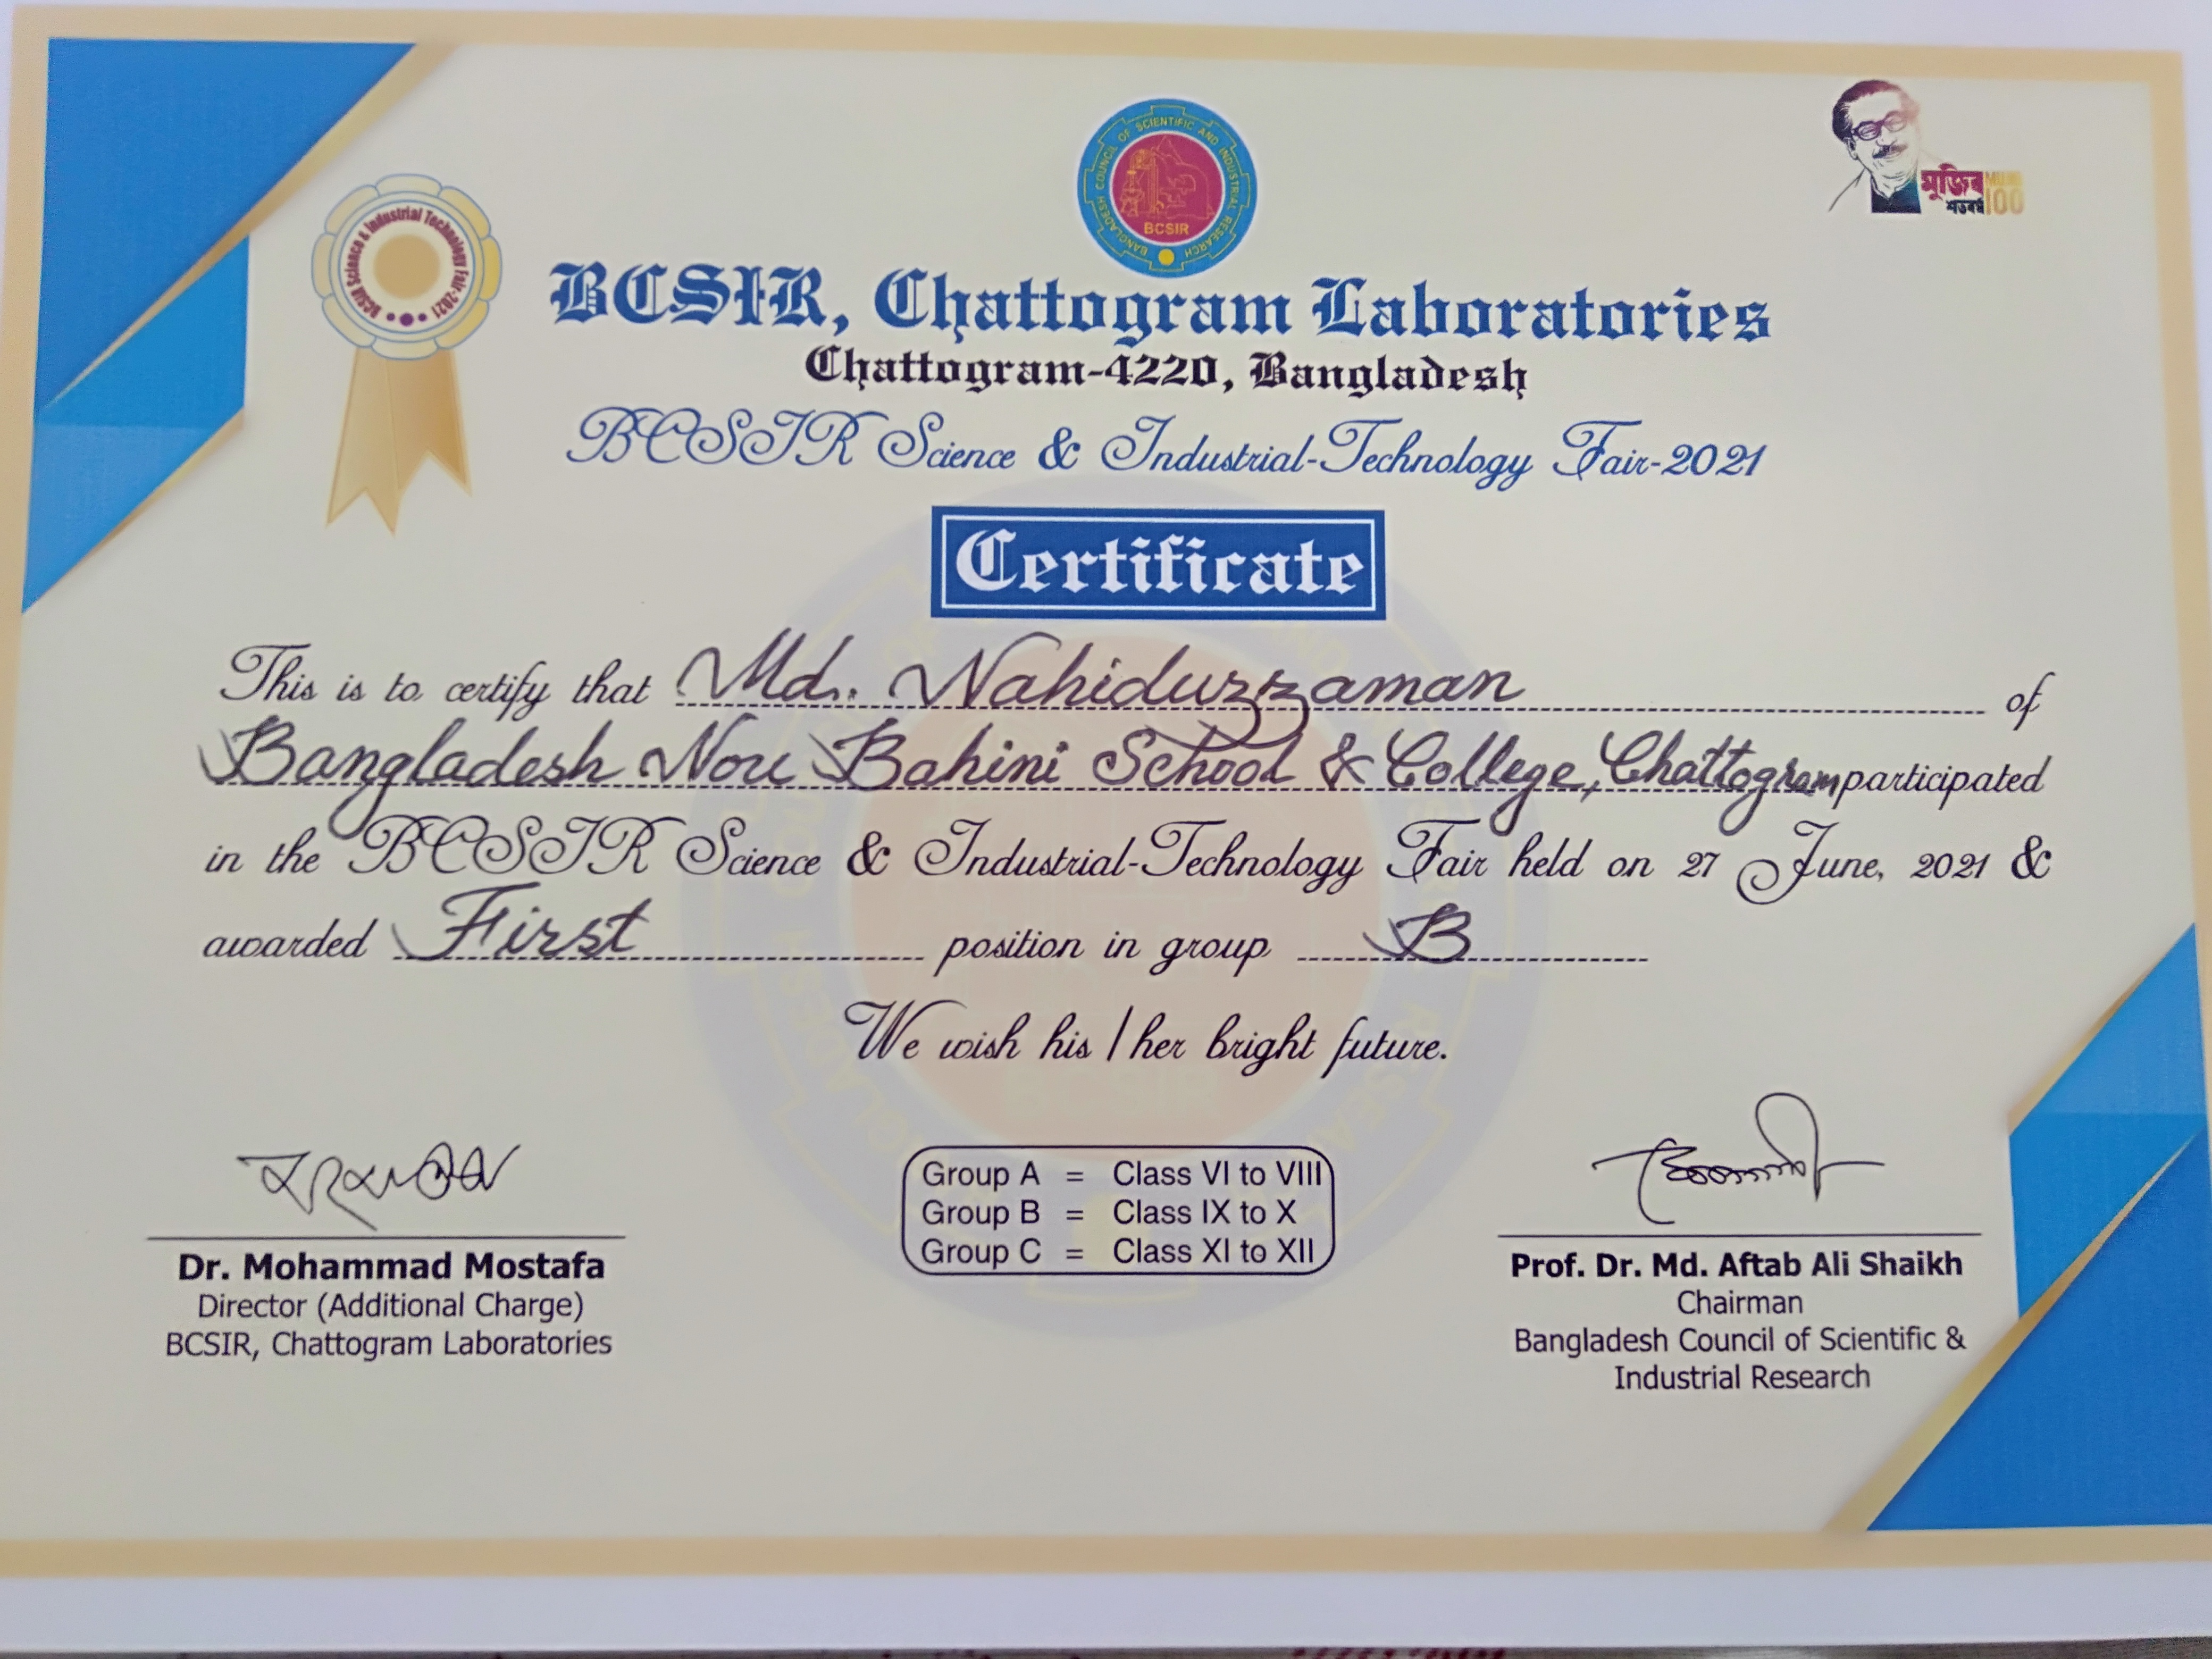 BANGLADESH COUNCIL OF SCIENTIFIC AND INDUSTRIAL RESEARCH
BCSIR
মুজিব MUJIB
শতবর্ষ 100
BCSIR Science & Industrial Technology Fair-2021
BCSIR, Chattogram Laboratories
Chattogram-4220, Bangladesh
BCSIR Science & Industrial-Technology Fair-2021
Certificate
This is to certify that Md. Nahiduzzaman of
Bangladesh Nou Bahini School & College, Chattogram participated
in the BCSIR Science & Industrial-Technology Fair held on 27 June, 2021 &
awarded First position in group B
We wish his / her bright future.
Group A = Class VI to VIII
Group B = Class IX to X
Group C = Class XI to XII
Dr. Mohammad Mostafa
Director (Additional Charge)
BCSIR, Chattogram Laboratories
Prof. Dr. Md. Aftab Ali Shaikh
Chairman
Bangladesh Council of Scientific &
Industrial Research